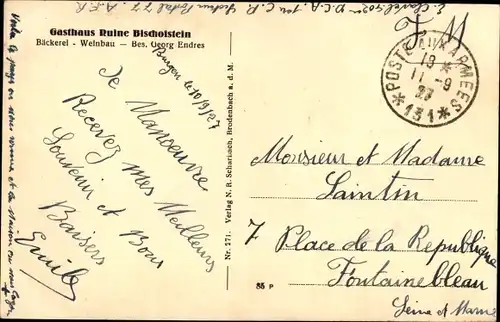 Gasthaus Ruine Bischofstein
Bäckerei - Weinbau — Bes. Georg Endres
Burgen le 10/9/27
De Manoeuvre
Recevez mes Meilleurs
Souvenir et Bons
Baisers
Emile
Voila le pays ou nous sommes et la maison ou nous
Verlag N. R. Scharbach, Brodenbach a. d. M.
Nr. 271.
85 P
F M
POSTE AUX ARMEES
18 *
11 - 9
27
*131*
Monsieur et Madame
Saintin
7 Place de la Republique
Fontainebleau
Seine et Marne